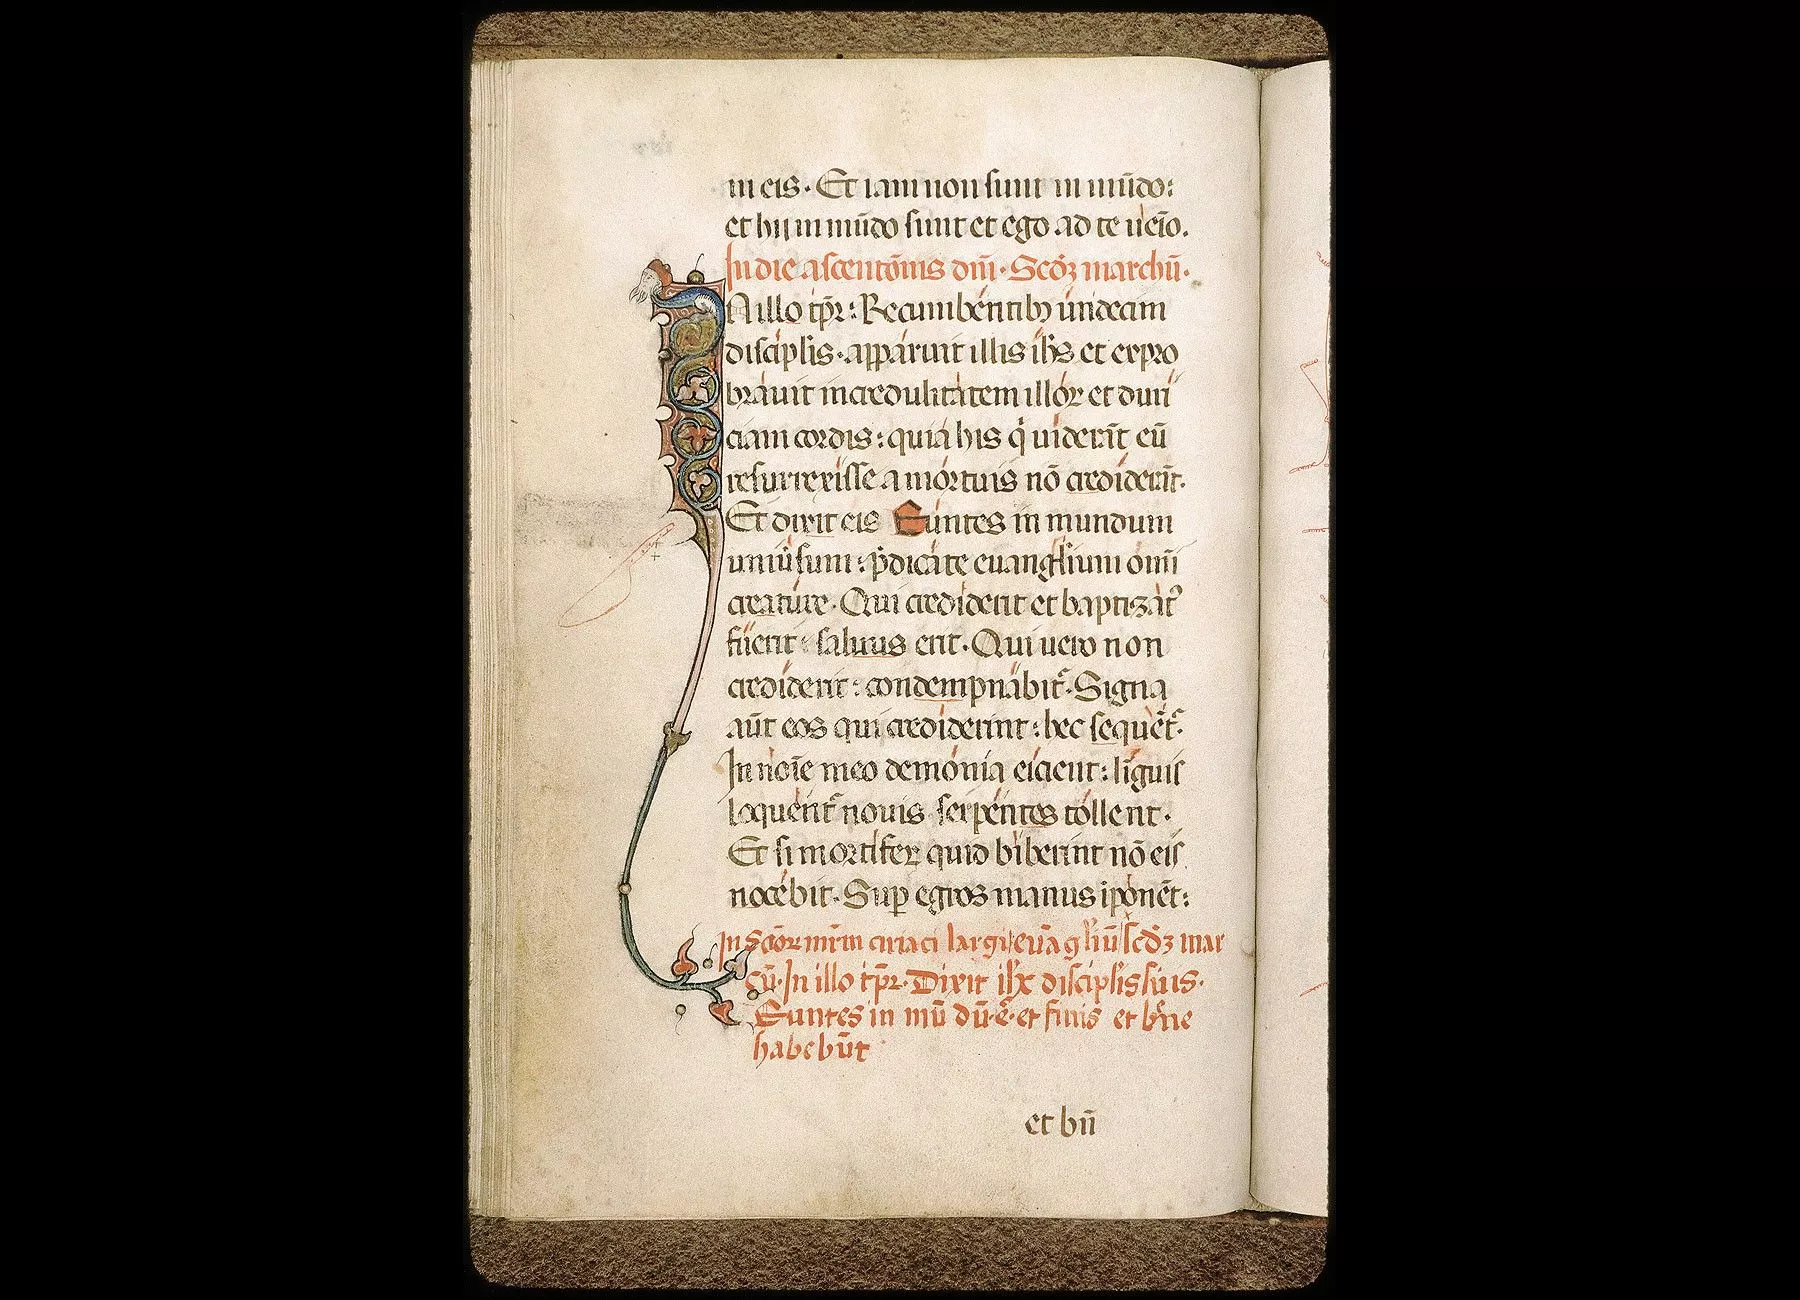 in eis. Et iam non sunt in mūdo:
et hii in mūdo sunt et ego ad te ueīo.
In die ascentōnis dn̄i. Scd̄ꝫ marchū.
N illo tp̄r: Recumbentibꝫ undecim
disciplis. apparuit illis ih̄s et expro
brauit incredulitatem illoꝝ et duri
ciam cordis: quia his q̇ uiderāt eū
resurrexisse a mortuis nō crediderāt.
Et dixit eis Euntes in mundum
uniūsum: p̄dicate euangl̄ium omī
creature. Qui crediderit et baptizat᷑
fuerit: saluus erit. Qui uero non
crediderit: condempnabit᷑. Signa
aūt eos qui crediderint: hec sequēt᷑.
In noīe meo demonia eicient: līguis
loquent᷑ nouis serpentes tollent.
Et si mortifeꝝ quid biberint nō eis
nocebit. Sup̄ egros manus īponēt:
In scōꝝ mr̄m ciriaci largi euāgl̄iū scd̄ꝫ mar
cū. In illo tp̄r. Dixit ih̄c disciplis suis.
Euntes in mū dū. ē. et finis et bn̄e
habebūt
et bn̄